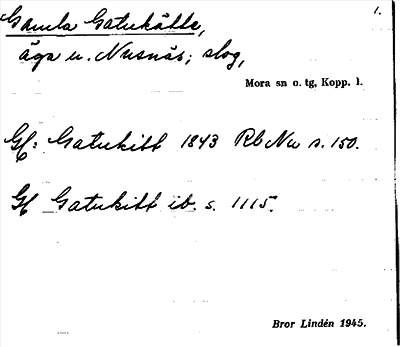 1.
Gamla Gatukätte,
äga u. Nusnäs; slog,
Mora sn o. tg, Kopp. l.
Gf: Gatukitt 1843 Rb Na s. 150.
Gf Gatukitt ib. s. 1115.
Bror Lindén 1945.